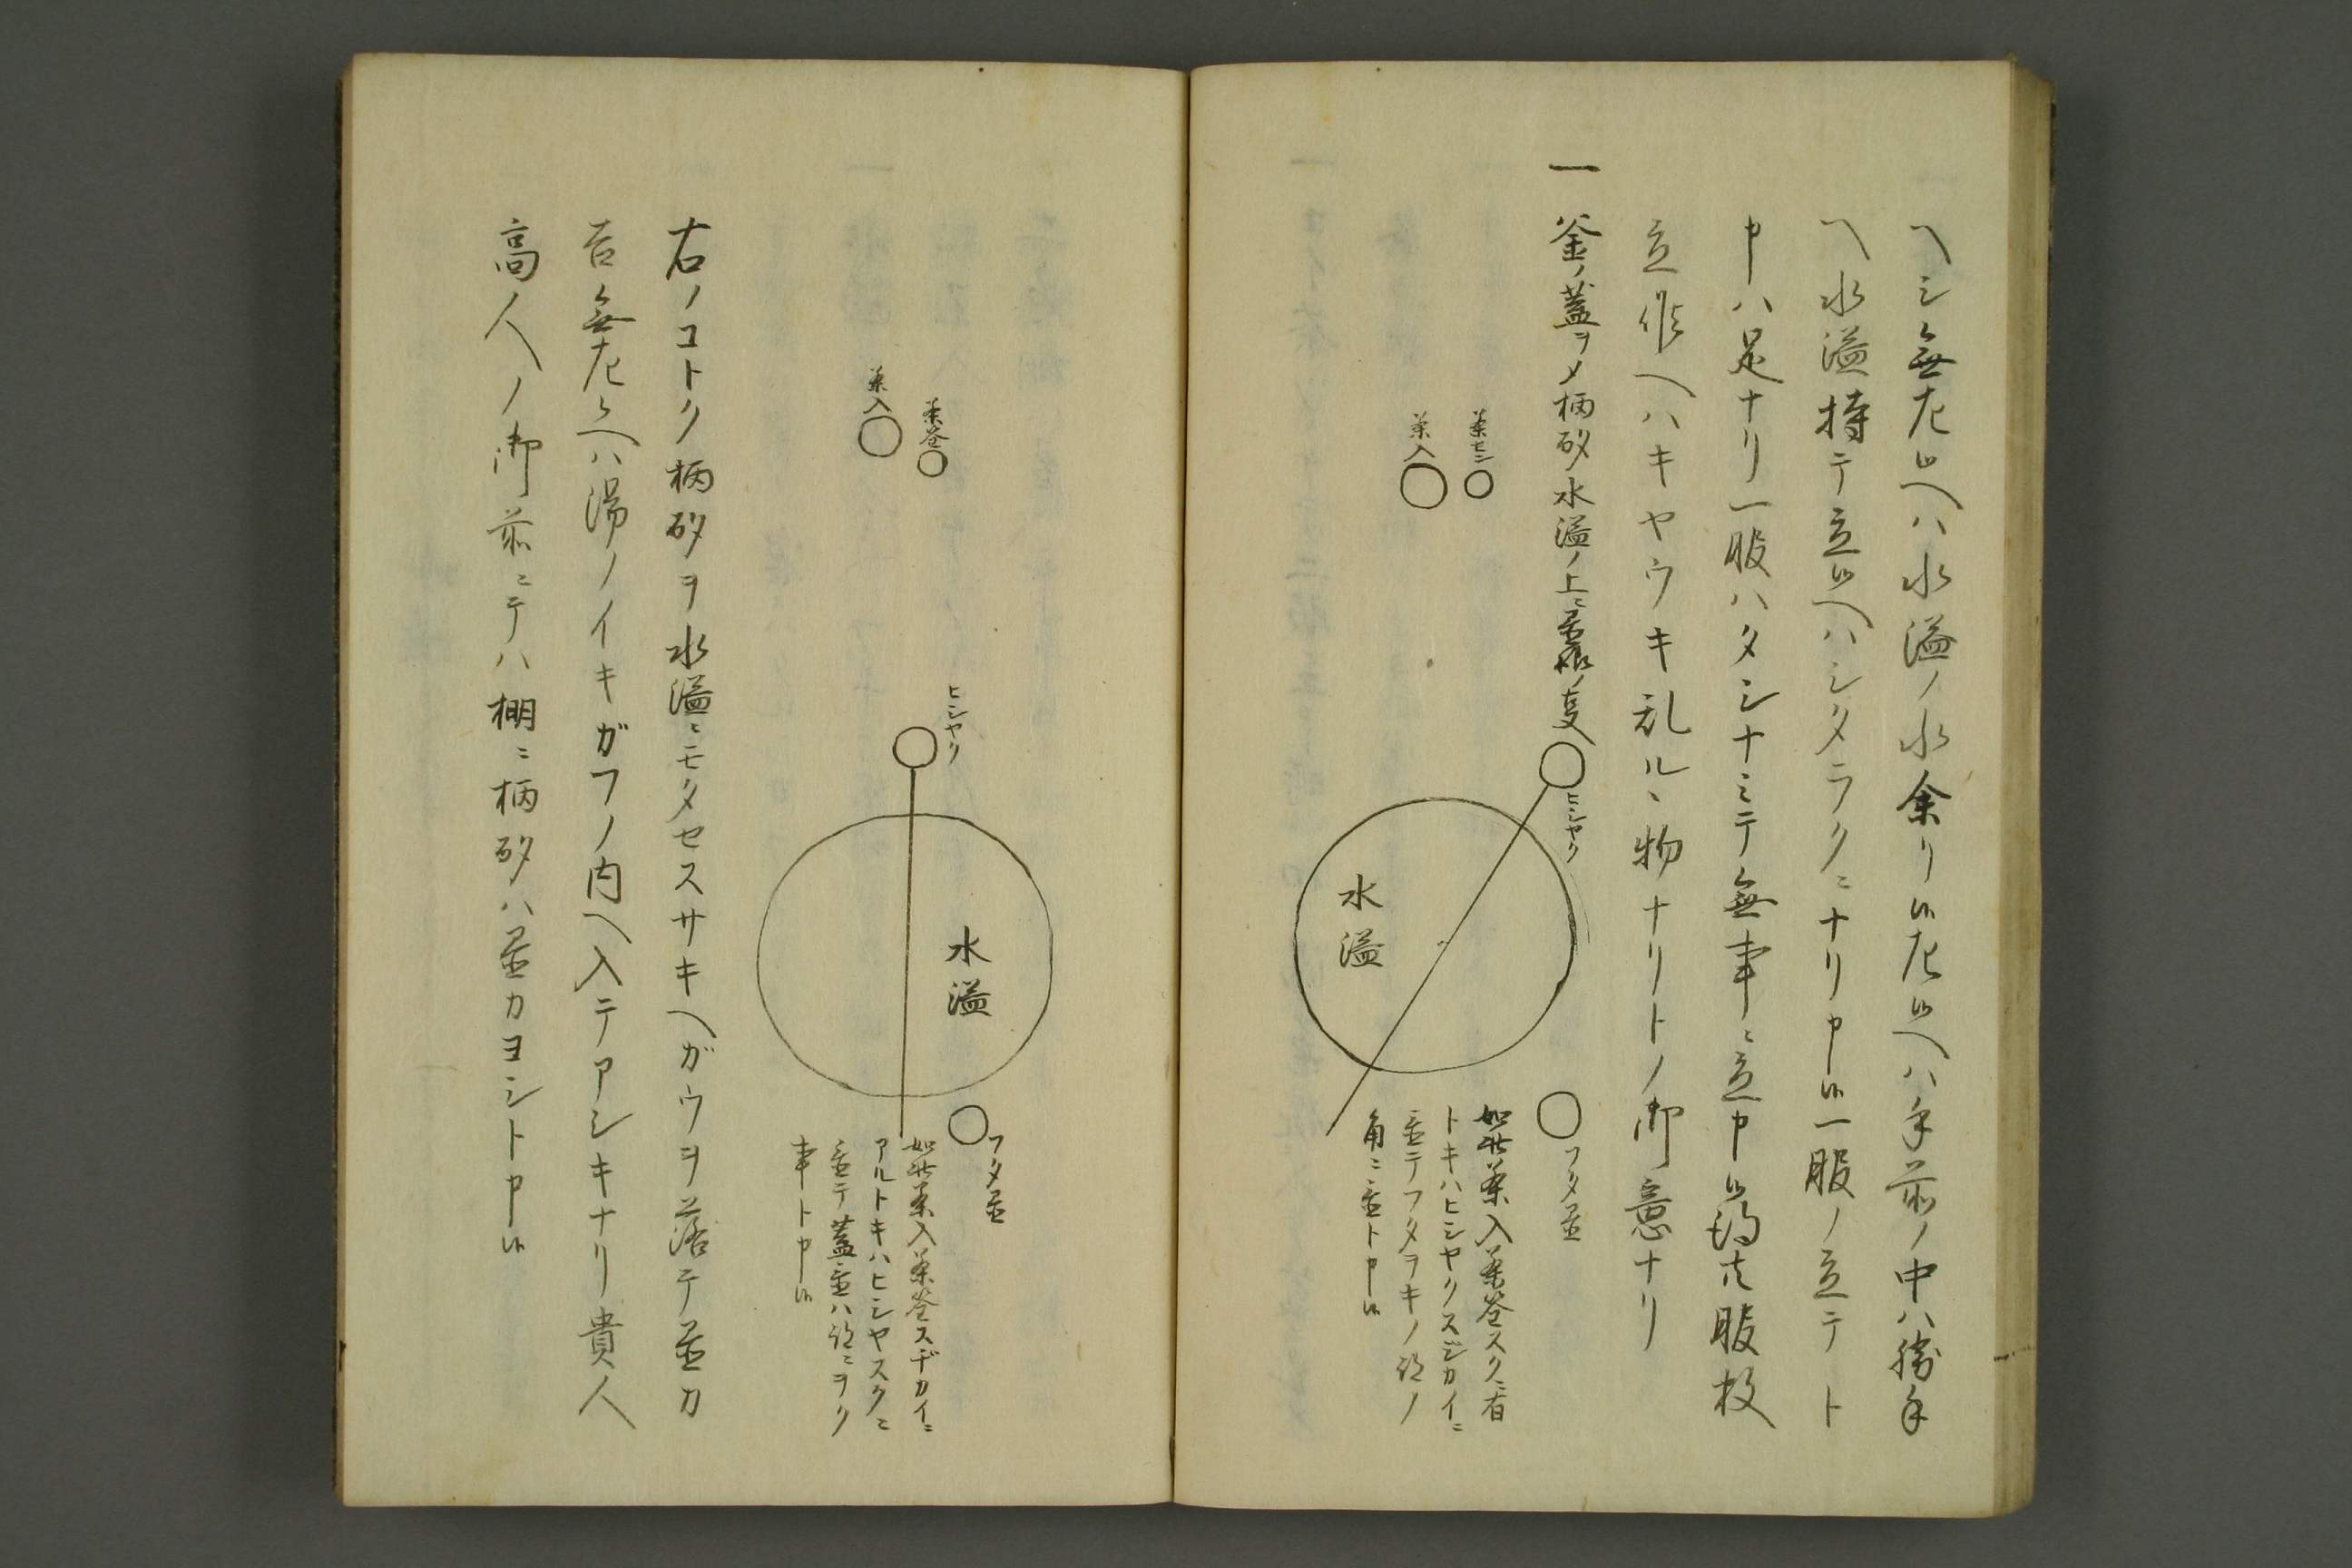 ヘシ無左候ヘハ水溢ノ水余リ候左候ヘハ手前ノ中ハ勝手
ヘ水溢持テ立候ヘハシタラクニナリ申候一服ノ立テト
申ハ足ナリ一服ハタシナミテ無事ニ立申候
立作ヘハキヤウキ乱ルヽ物ナリトノ御意ナリ
一釜ノ蓋ヲメ柄杓水溢ノ上ニ置様ノ事
茶セン
茶入
ヒシヤク
水溢
フタ置
如此茶入茶筌スクニ有
トキハヒシヤクスジカイニ
置テフタヲキノ
角ニ置ト申候
茶筌
茶入
ヒシヤク
水溢
フタ置
如此茶入茶筌スヂカイニ
アルトキハヒシヤスクニ
置テ蓋置ハ ニヲク
事ト申候
右ノコトク柄杓ヲ水溢ニモタセスサキヘガウヲ落テ置カ
吉無左候ヘハ湯ノイキガフノ内ヘ入テアシキナリ貴人
高人ノ御前ニテハ棚ニ柄杓ハ置カヨシト申候